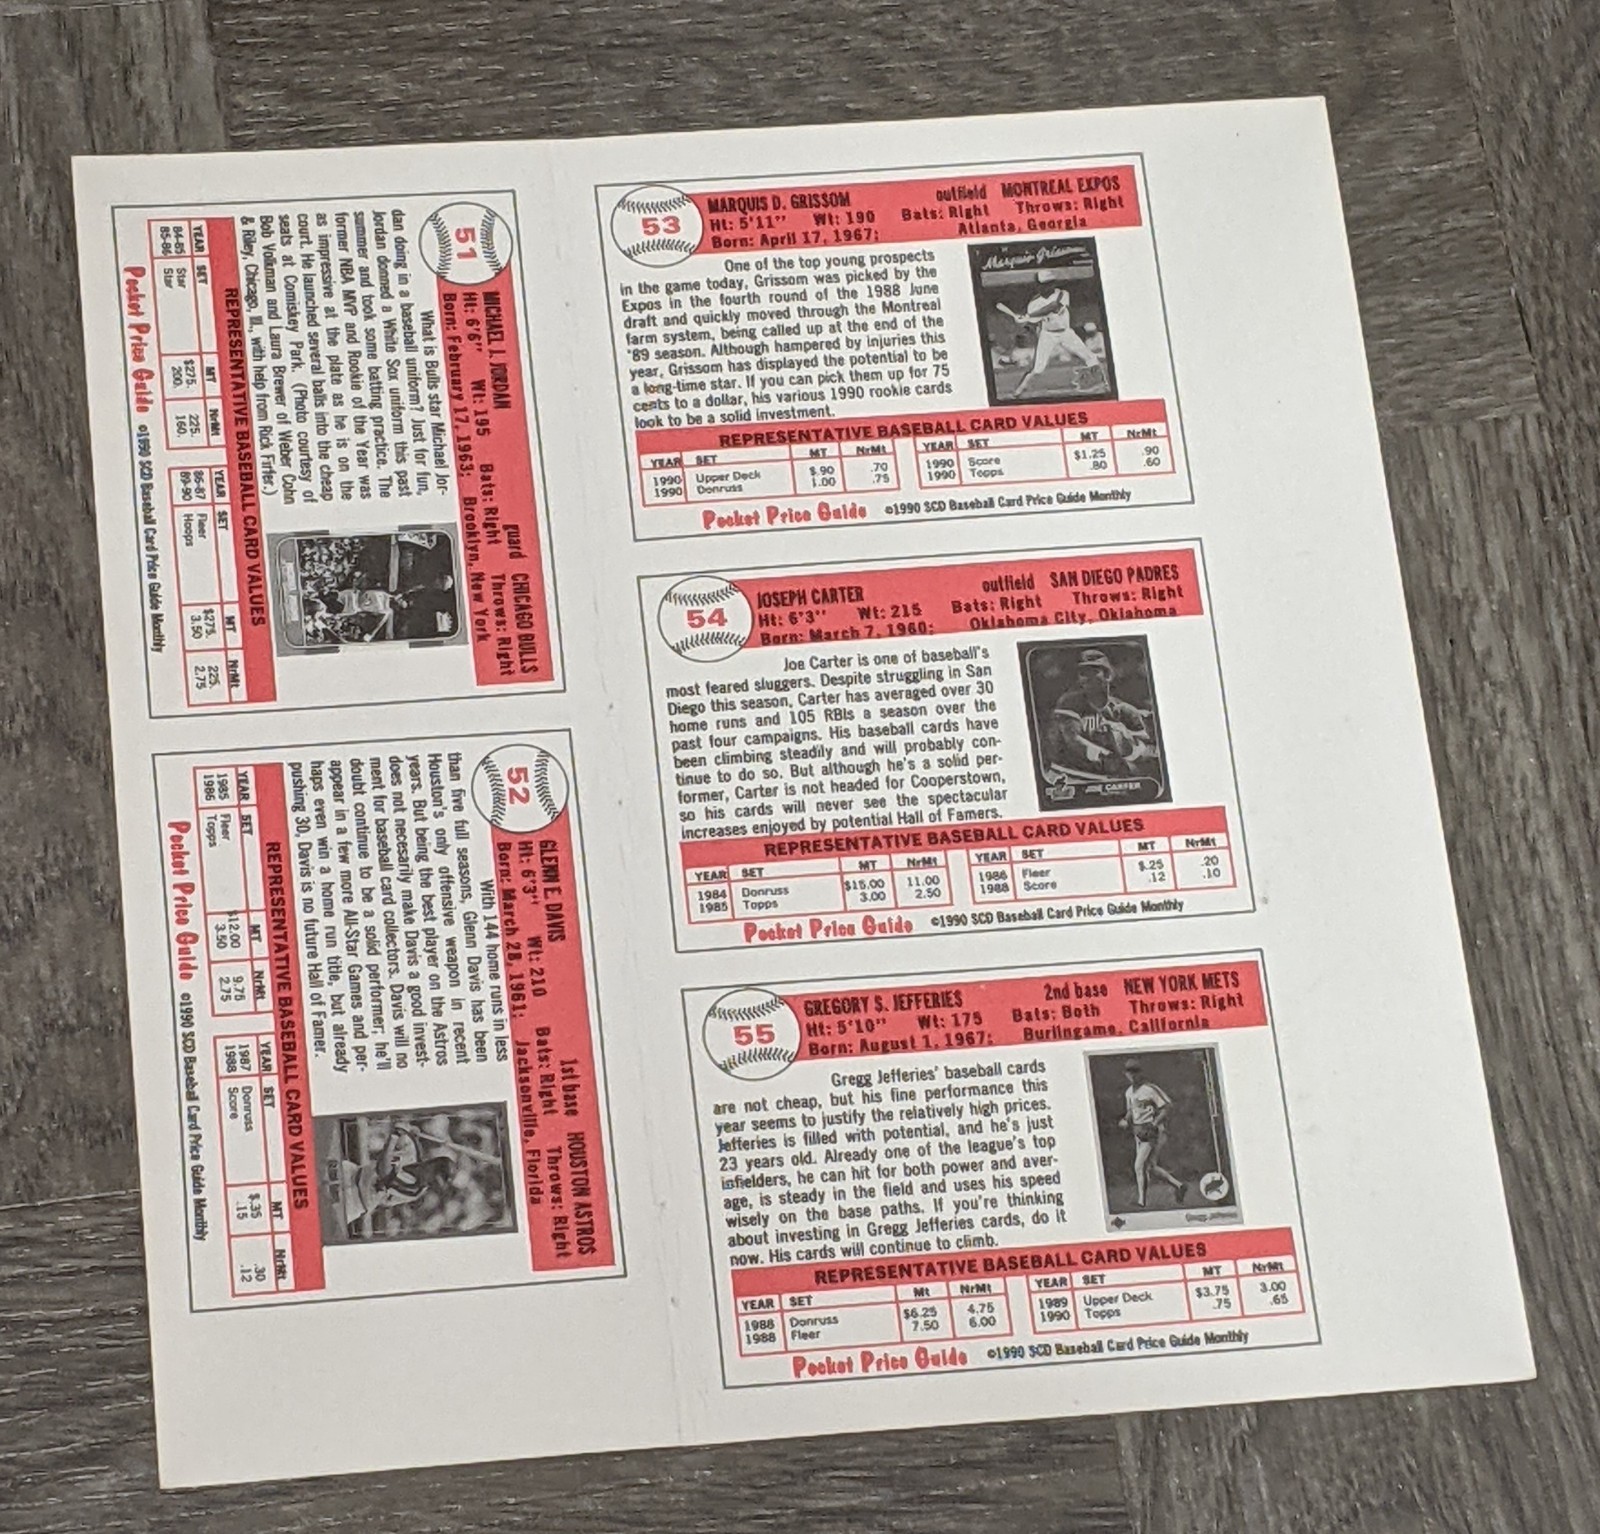 51
MICHAEL J. JORDAN guard CHICAGO BULLS
Ht: 6'6" Wt: 195 Bats: Right Throws: Right
Born: February 17, 1963; Brooklyn, New York
What is Bulls star Michael Jor-
dan doing in a baseball uniform? Just for fun,
Jordan donned a White Sox uniform this past
summer and took some batting practice. The
former NBA MVP and Rookie of the Year was
as impressive at the plate as he is on the
court. He launched several balls into the cheap
seats at Comiskey Park. (Photo courtesy of
Bob Volkman and Laura Brewer of Weber Cohn
& Riley, Chicago, Ill., with help from Rick Firfer.)
REPRESENTATIVE BASEBALL CARD VALUES
YEAR SET MT NrMt YEAR SET MT NrMt
84-85 Star $275. 225. 86-87 Fleer $275. 225.
85-86 Star 200. 160. 89-90 Hoops 3.50 2.75
Pocket Price Guide ©1990 SCD Baseball Card Price Guide Monthly
52
GLENN E. DAVIS 1st base HOUSTON ASTROS
Ht: 6'3" Wt: 210 Bats: Right Throws: Right
Born: March 28, 1961; Jacksonville, Florida
With 144 home runs in less
than five full seasons, Glenn Davis has been
Houston's only offensive weapon in recent
years. But being the best player on the Astros
does not necesarily make Davis a good invest-
ment for baseball card collectors. Davis will no
doubt continue to be a solid performer; he'll
appear in a few more All-Star Games and per-
haps even win a home run title, but already
pushing 30, Davis is no future Hall of Famer.
REPRESENTATIVE BASEBALL CARD VALUES
YEAR SET MT NrMt YEAR SET MT NrMt
1985 Fleer $12.00 9.75 1987 Donruss $.35 .30
1986 Topps 3.50 2.75 1988 Score .15 .12
Pocket Price Guide ©1990 SCD Baseball Card Price Guide Monthly
53
MARQUIS D. GRISSOM outfield MONTREAL EXPOS
Ht: 5'11" Wt: 190 Bats: Right Throws: Right
Born: April 17, 1967; Atlanta, Georgia
Marquis Grissom
One of the top young prospects
in the game today, Grissom was picked by the
Expos in the fourth round of the 1988 June
draft and quickly moved through the Montreal
farm system, being called up at the end of the
'89 season. Although hampered by injuries this
year, Grissom has displayed the potential to be
a long-time star. If you can pick them up for 75
cents to a dollar, his various 1990 rookie cards
look to be a solid investment.
REPRESENTATIVE BASEBALL CARD VALUES
YEAR SET MT NrMt YEAR SET MT NrMt
1990 Upper Deck $.90 .70 1990 Score $1.25 .90
1990 Donruss 1.00 .75 1990 Topps .80 .60
Pocket Price Guide ©1990 SCD Baseball Card Price Guide Monthly
54
JOSEPH CARTER outfield SAN DIEGO PADRES
Ht: 6'3" Wt: 215 Bats: Right Throws: Right
Born: March 7, 1960; Oklahoma City, Oklahoma
Joe Carter is one of baseball's
most feared sluggers. Despite struggling in San
Diego this season, Carter has averaged over 30
home runs and 105 RBIs a season over the
past four campaigns. His baseball cards have
been climbing steadily and will probably con-
tinue to do so. But although he's a solid per-
former, Carter is not headed for Cooperstown,
so his cards will never see the spectacular
increases enjoyed by potential Hall of Famers.
JOE CARTER
REPRESENTATIVE BASEBALL CARD VALUES
YEAR SET MT NrMt YEAR SET MT NrMt
1984 Donruss $15.00 11.00 1986 Fleer $.25 .20
1985 Topps 3.00 2.50 1988 Score .12 .10
Pocket Price Guide ©1990 SCD Baseball Card Price Guide Monthly
55
GREGORY S. JEFFERIES 2nd base NEW YORK METS
Ht: 5'10" Wt: 175 Bats: Both Throws: Right
Born: August 1, 1967; Burlingame, California
Gregg Jefferies' baseball cards
are not cheap, but his fine performance this
year seems to justify the relatively high prices.
Jefferies is filled with potential, and he's just
23 years old. Already one of the league's top
infielders, he can hit for both power and aver-
age, is steady in the field and uses his speed
wisely on the base paths. If you're thinking
about investing in Gregg Jefferies cards, do it
now. His cards will continue to climb.
Gregg Jefferies
REPRESENTATIVE BASEBALL CARD VALUES
YEAR SET Mt NrMt YEAR SET MT NrMt
1988 Donruss $6.25 4.75 1989 Upper Deck $3.75 3.00
1988 Fleer 7.50 6.00 1990 Topps .75 .65
Pocket Price Guide ©1990 SCD Baseball Card Price Guide Monthly